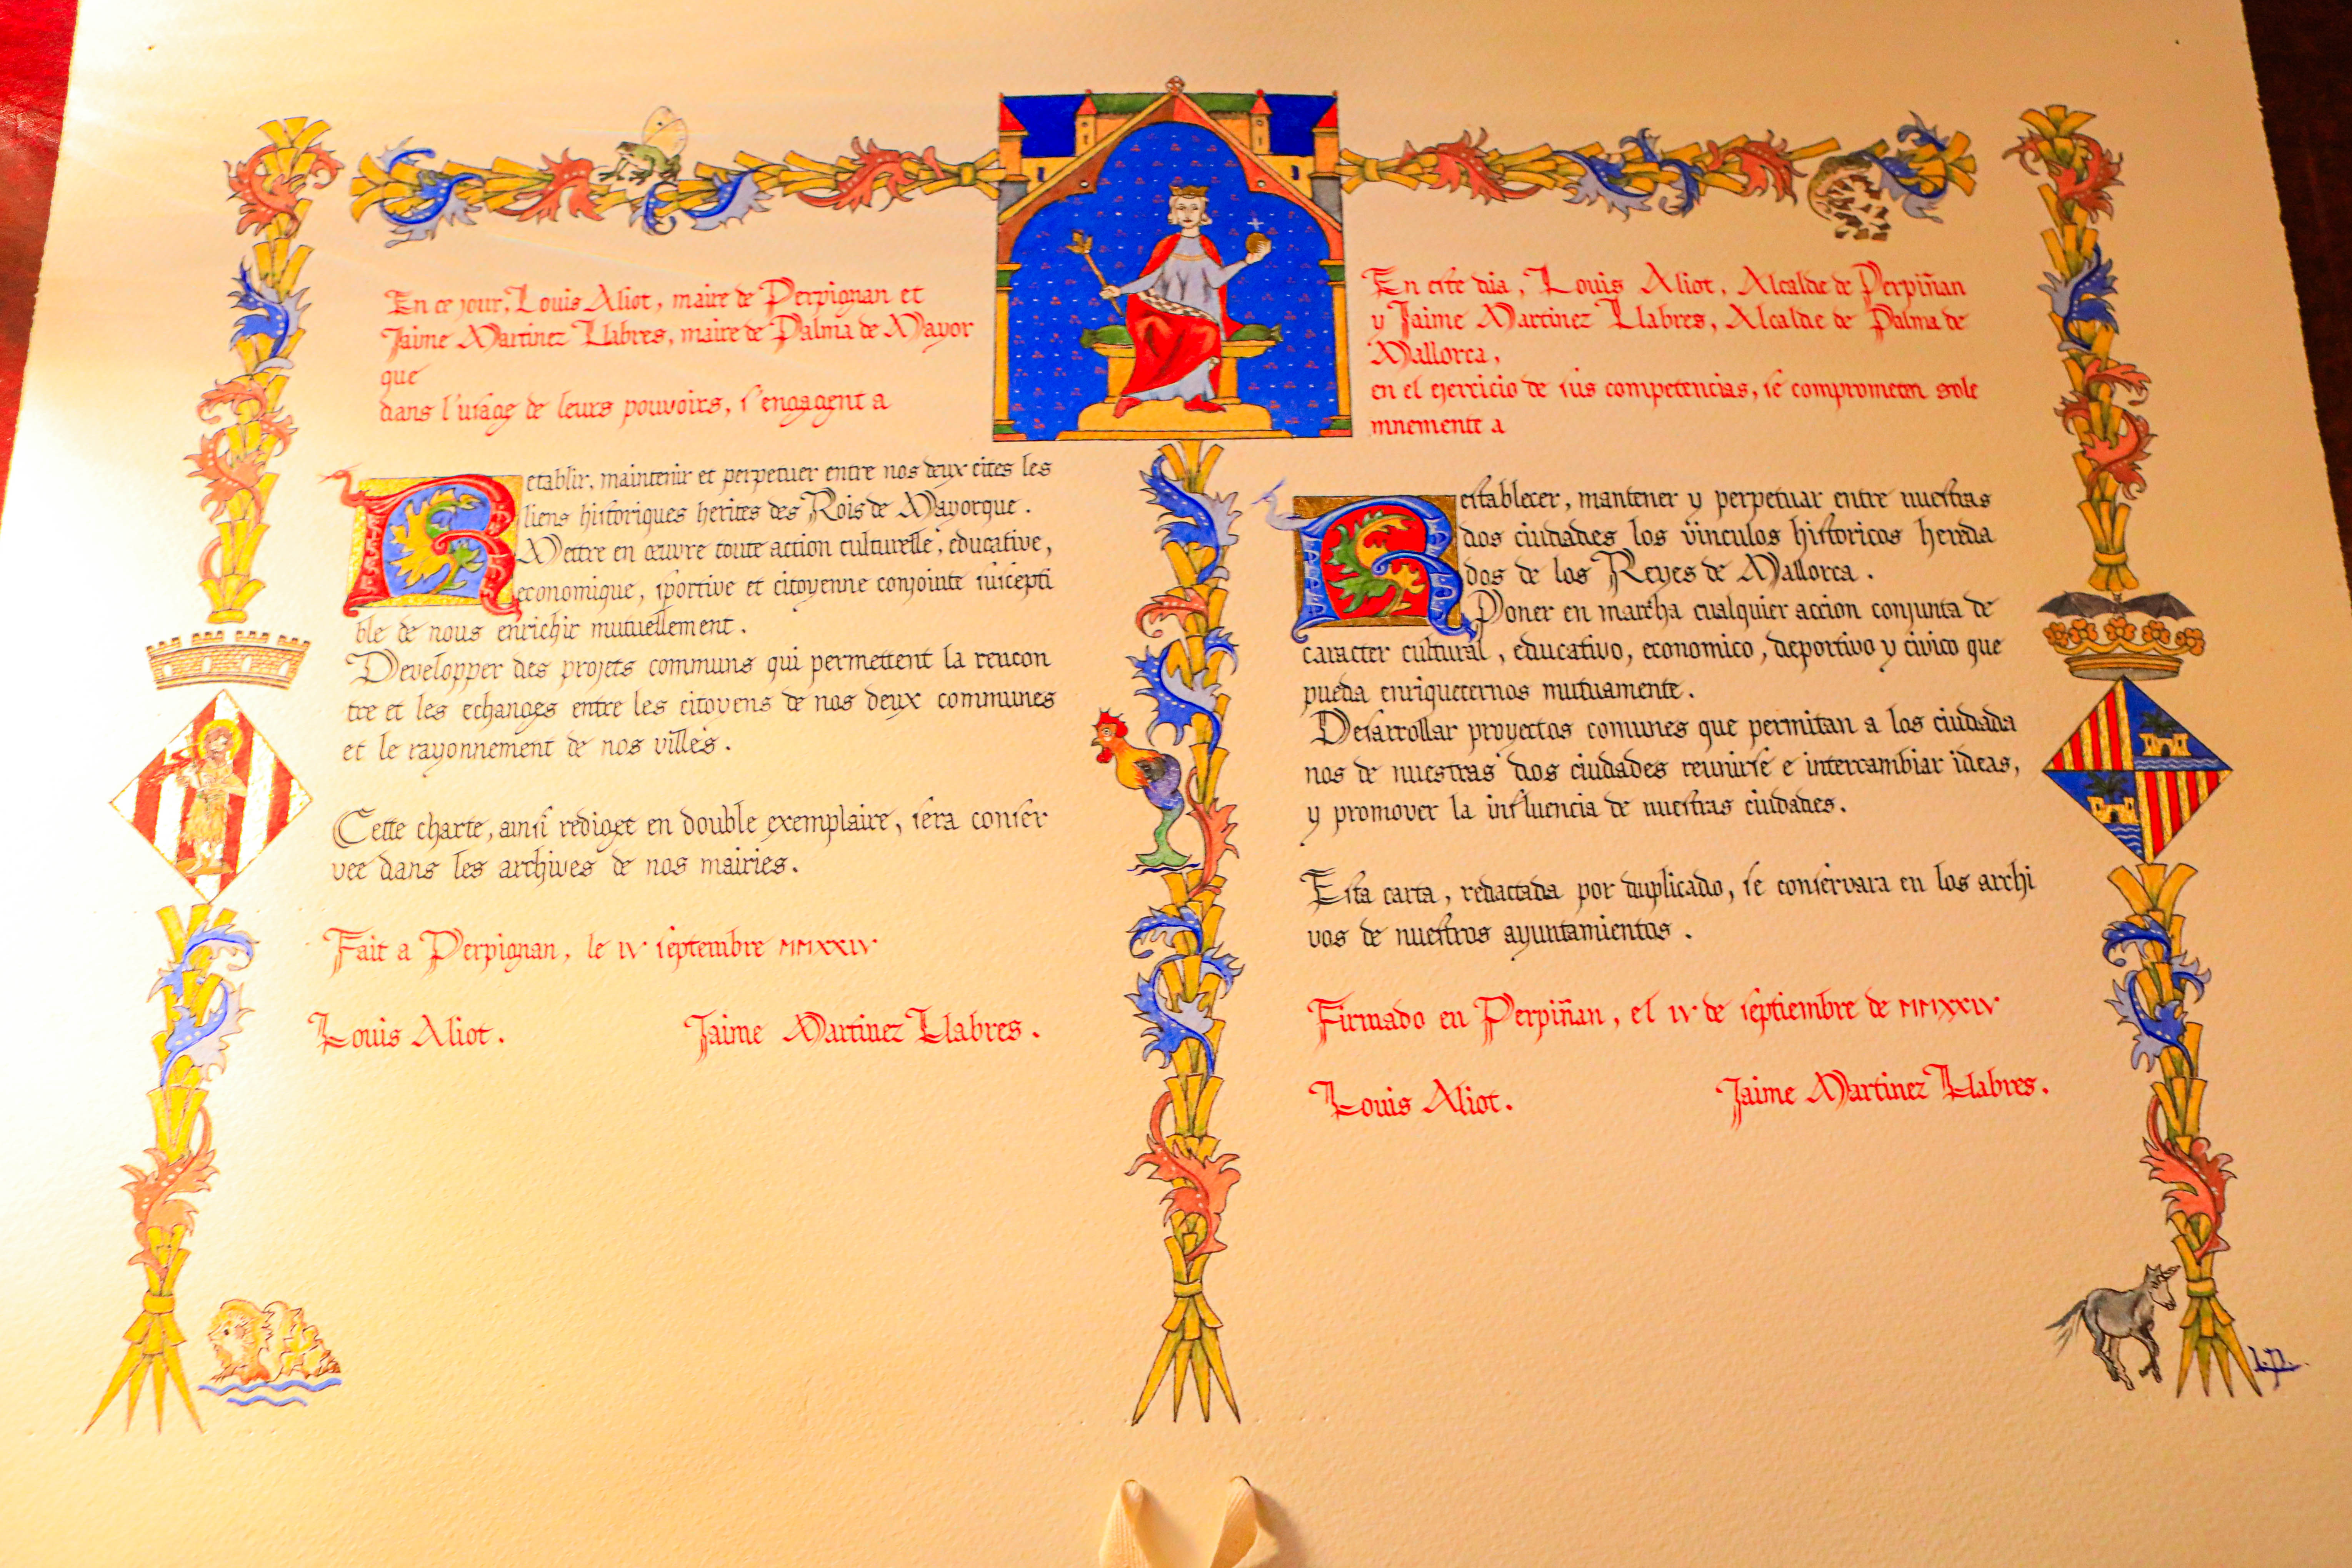 En ce jour, Louis Aliot, maire de Perpignan et
Jaime Martinez Llabres, maire de Palma de Mayor
que
dans l'usage de leurs pouvoirs, s'engagent a
Retablir, maintenir et perpetuer entre nos deux cites les
liens historiques herites des Rois de Mayorque.
Mettre en œuvre toute action culturelle, educative,
economique, sportive et citoyenne conjointe suscepti
ble de nous enrichir mutuellement.
Developper des projets communs qui permettent la rencon
tre et les echanges entre les citoyens de nos deux communes
et le rayonnement de nos villes.
Cette charte, ainsi rediget en double exemplaire, sera conser
vee dans les archives de nos mairies.
Fait a Perpignan, le IV septembre MMXXIV
Louis Aliot. Jaime Martinez Llabres.
En este dia, Louis Aliot, Alcalde de Perpiñan
y Jaime Martinez Llabres, Alcalde de Palma de
Mallorca,
en el ejercicio de sus competencias, se comprometen sole
mnemente a
Restablecer, mantener y perpetuar entre nuestras
dos ciudades los vinculos historicos hereda
dos de los Reyes de Mallorca.
Poner en marcha cualquier accion conjunta de
caracter cultural, educativo, economico, deportivo y civico que
pueda enriquecernos mutuamente.
Desarrollar proyectos comunes que permitan a los ciudada
nos de nuestras dos ciudades reunirse e intercambiar ideas,
y promover la influencia de nuestras ciudades.
Esta carta, redactada por duplicado, se conservara en los archi
vos de nuestros ayuntamientos.
Firmado en Perpiñan, el IV de septiembre de MMXXIV
Louis Aliot. Jaime Martinez Llabres.
L.P.